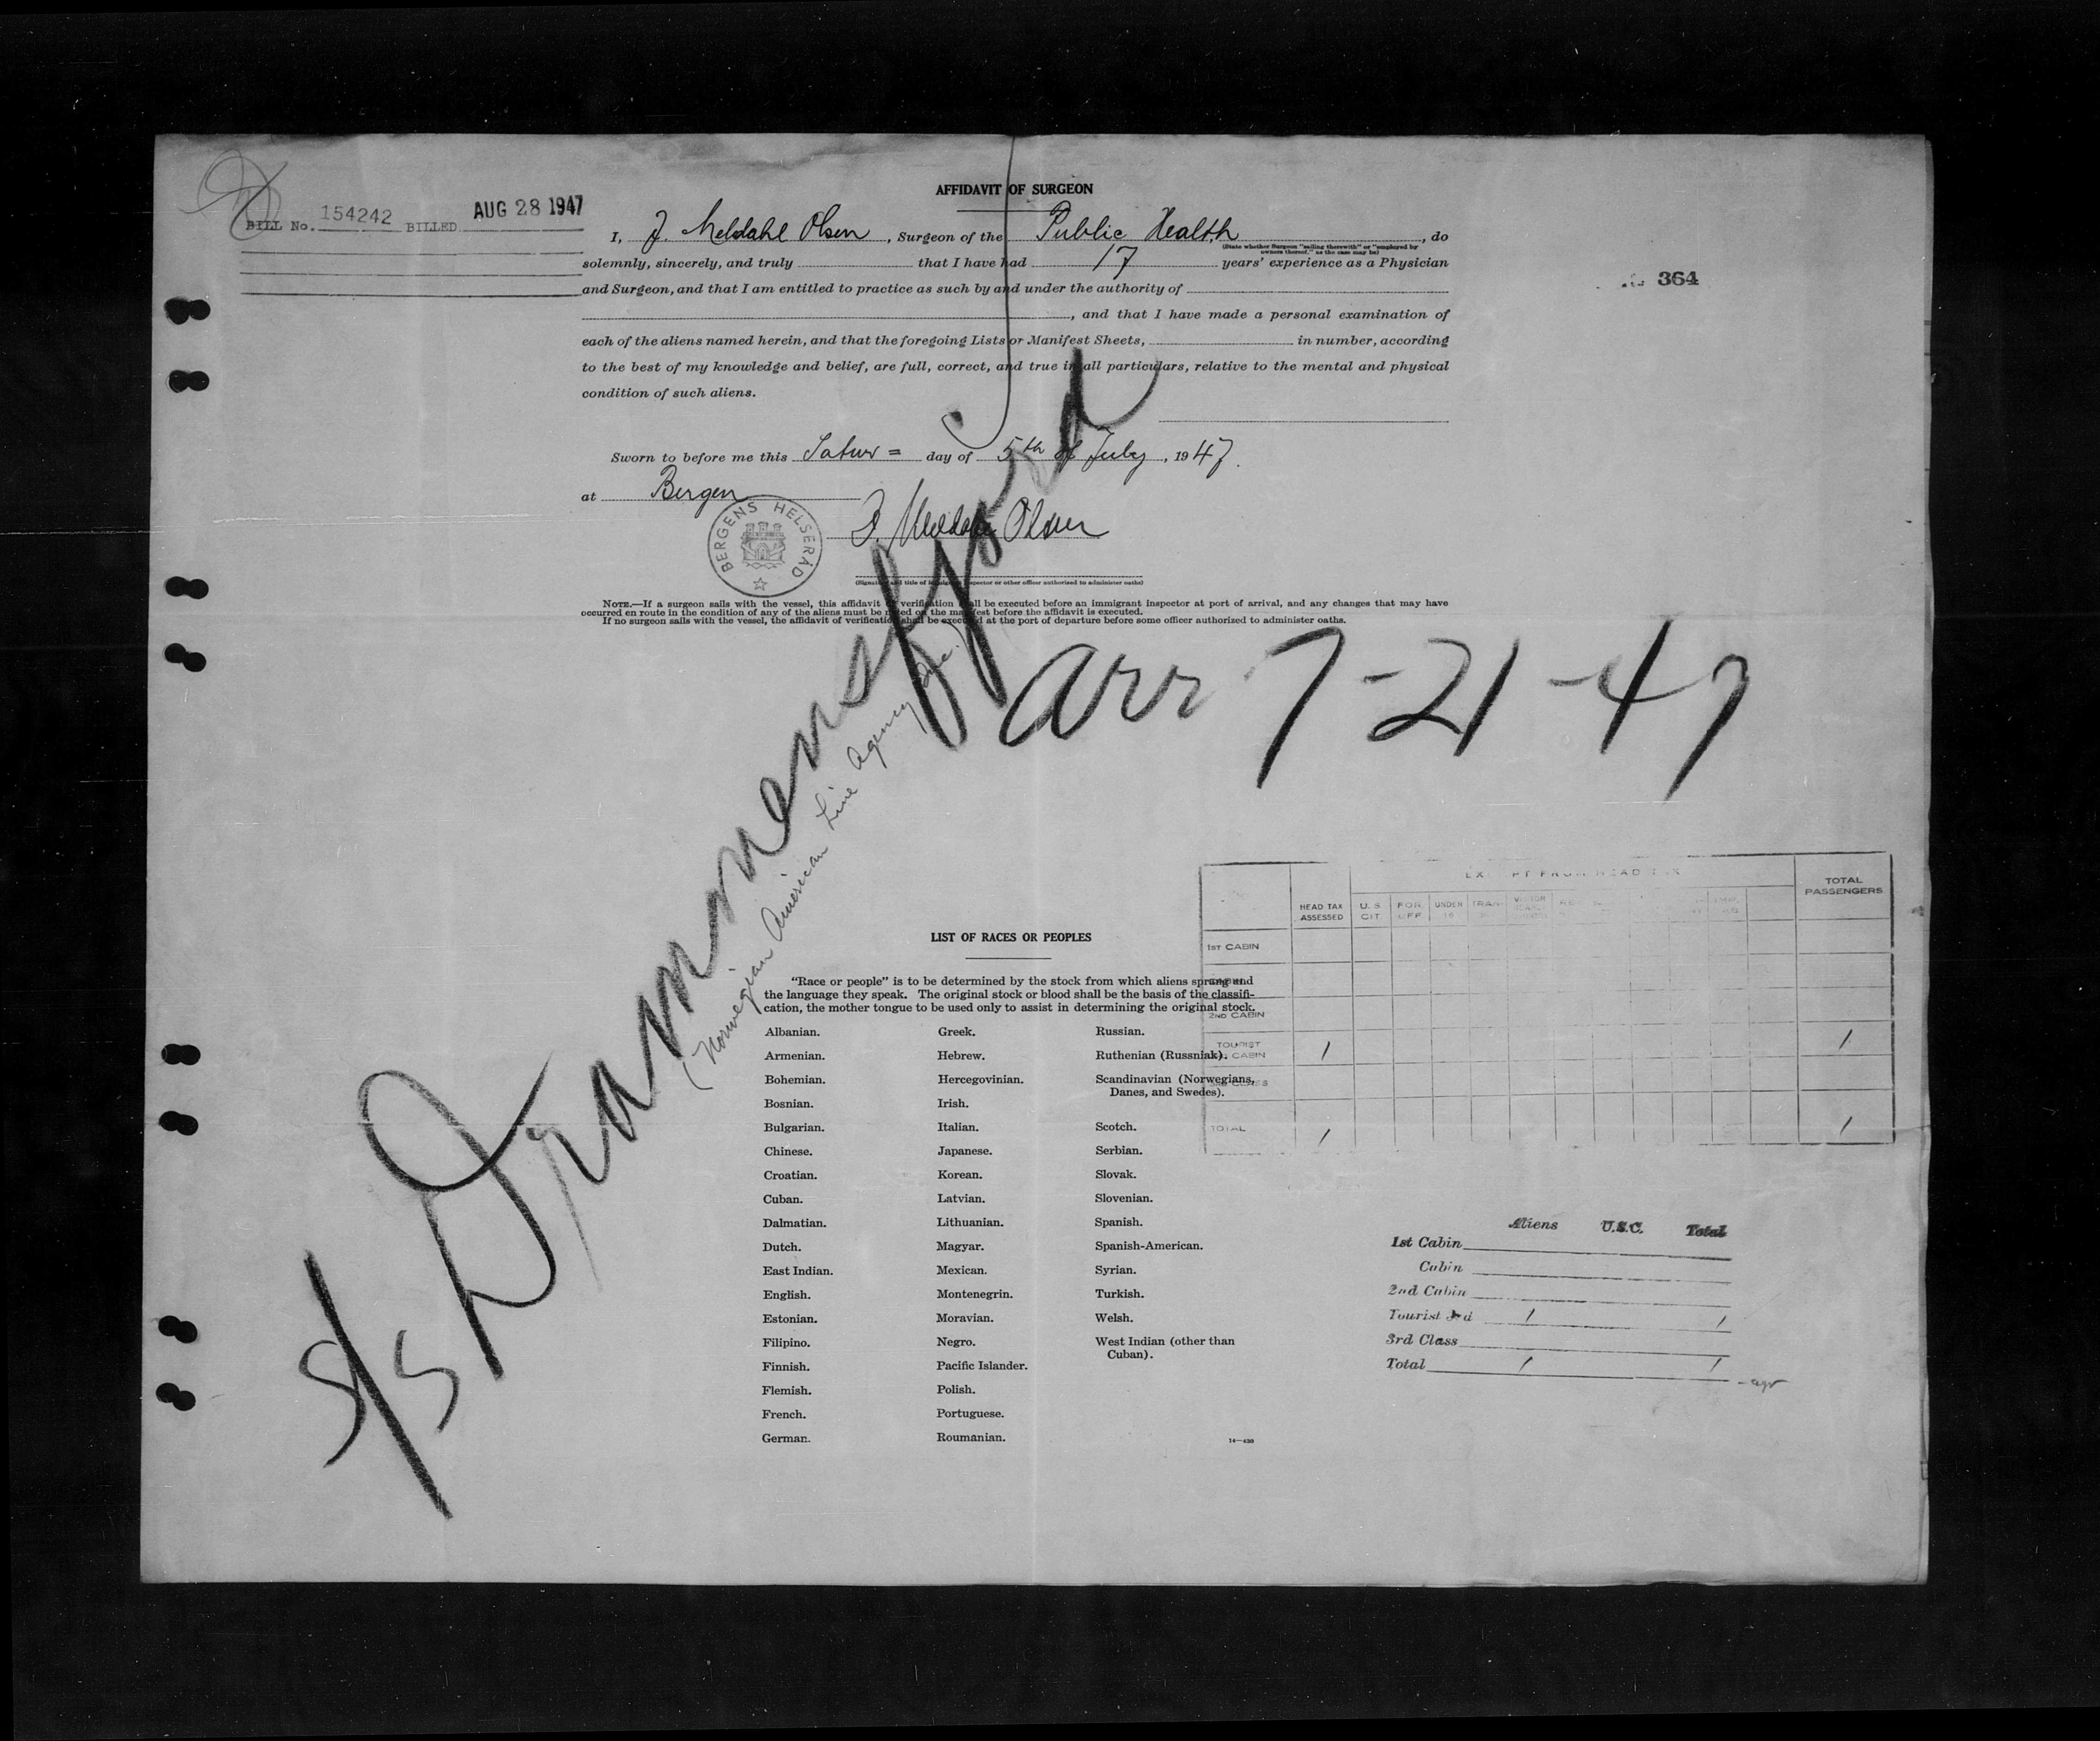 BILL No. 154242 BILLED AUG 28 1947
AFFIDAVIT OF SURGEON
I, J. Meldahl Olsen, Surgeon of the Public Health, do
(State whether Surgeon "sailing therewith" or "employed by
owners thereof," as the case may be)
solemnly, sincerely, and truly that I have had 17 years' experience as a Physician
and Surgeon, and that I am entitled to practice as such by and under the authority of
, and that I have made a personal examination of
each of the aliens named herein, and that the foregoing Lists or Manifest Sheets, in number, according
to the best of my knowledge and belief, are full, correct, and true in all particulars, relative to the mental and physical
condition of such aliens.
364
Sworn to before me this Satur= day of 5th of July, 1947.
at Bergen
BERGENS HELSERÅD
J. Meldahl Olsen
(Signature and title of immigrant inspector or other officer authorized to administer oaths)
NOTE.—If a surgeon sails with the vessel, this affidavit of verification shall be executed before an immigrant inspector at port of arrival, and any changes that may have
occurred en route in the condition of any of the aliens must be noted on the manifest before the affidavit is executed.
If no surgeon sails with the vessel, the affidavit of verification shall be executed at the port of departure before some officer authorized to administer oaths.
S/S Drammensfjord
(Norwegian American Line Agency Inc.)
arr 7-21-47
EXEMPT FROM HEAD TAX
TOTAL PASSENGERS
HEAD TAX ASSESSED U.S. CIT. FOR. OFF. UNDER 16 TRAN
1ST CABIN
CABIN
2ND CABIN
TOURIST CABIN 1 1
3RD CLASS
TOTAL 1 1
LIST OF RACES OR PEOPLES
"Race or people" is to be determined by the stock from which aliens sprang and
the language they speak. The original stock or blood shall be the basis of the classifi-
cation, the mother tongue to be used only to assist in determining the original stock.
Albanian.
Armenian.
Bohemian.
Bosnian.
Bulgarian.
Chinese.
Croatian.
Cuban.
Dalmatian.
Dutch.
East Indian.
English.
Estonian.
Filipino.
Finnish.
Flemish.
French.
German.
Greek.
Hebrew.
Hercegovinian.
Irish.
Italian.
Japanese.
Korean.
Latvian.
Lithuanian.
Magyar.
Mexican.
Montenegrin.
Moravian.
Negro.
Pacific Islander.
Polish.
Portuguese.
Roumanian.
Russian.
Ruthenian (Russniak).
Scandinavian (Norwegians,
Danes, and Swedes).
Scotch.
Serbian.
Slovak.
Slovenian.
Spanish.
Spanish-American.
Syrian.
Turkish.
Welsh.
West Indian (other than
Cuban).
14—430
Aliens U.S.C. Total
1st Cabin
Cabin
2nd Cabin
Tourist 3rd 1 1
3rd Class
Total 1 1